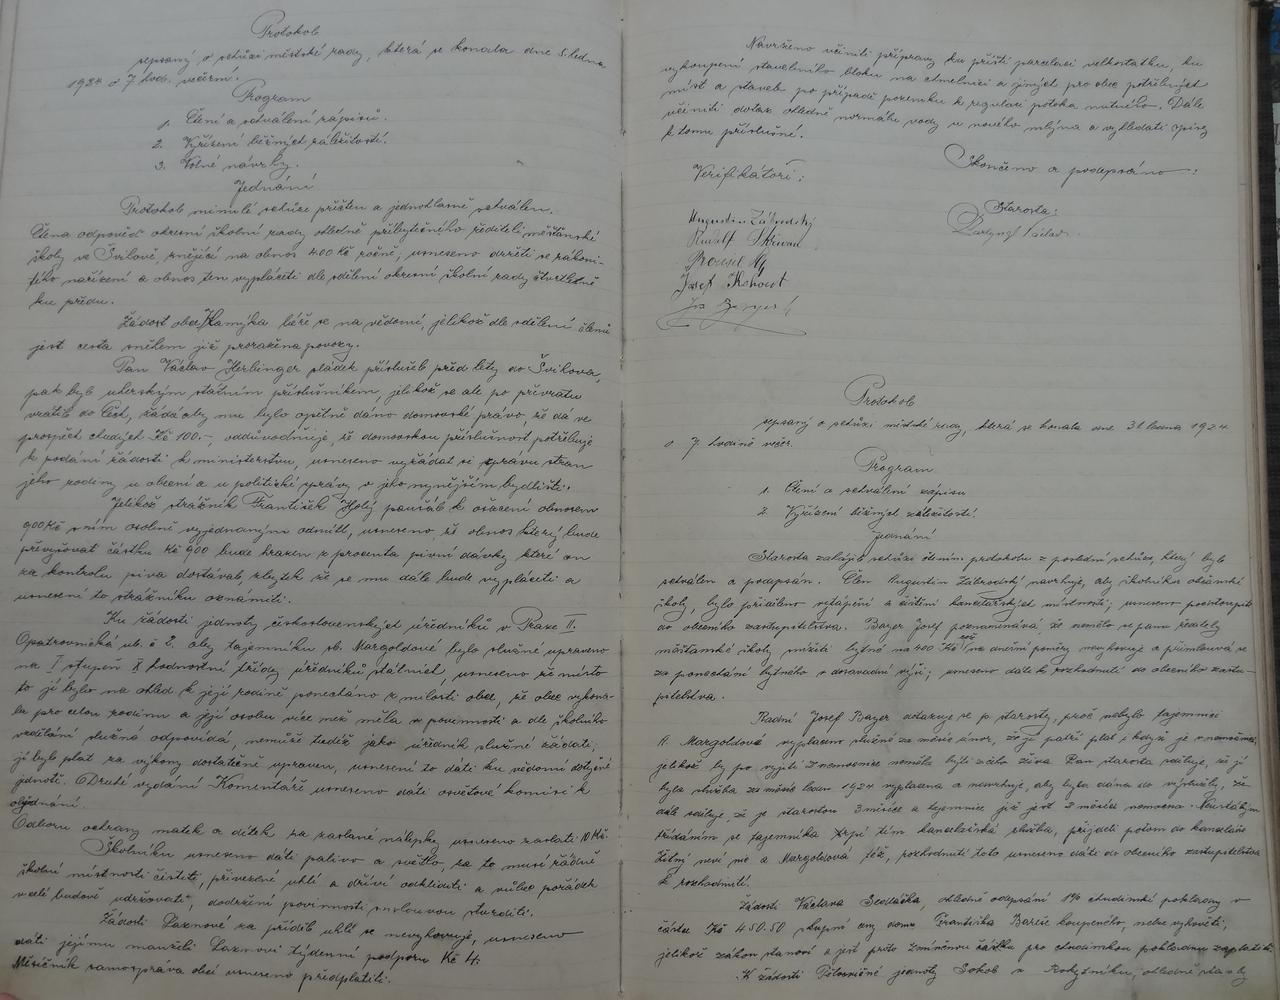 Protokol
sepsaný o schůzi městské rady, která se konala dne 5. ledna
1924 o 7 hod. večerní.
Program
1. Čtení a schválení zápisů.
2. Vyřízení běžných záležitostí.
3. Volné návrhy.
Jednání
Protokol minulé schůze přečten a jednohlasně schválen.
Čtena odpověď okresní školní rady ohledně přibytečného řediteli měšťanské
školy ve Švihově, znějící na obnos 400 Kč ročně; usneseno držeti se zákoni-
tého nařízení a obnos ten vypláceti dle sdělení okresní školní rady čtvrtletně
ku předu.
Žádost obce Kamýka béře se na vědomí, jelikož dle sdělení členů
jest cesta sněhem již proražena povozy.
Pan Václav Herbinger sládek příslušel před léty do Švihova,
pak byl uherským státním příslušníkem, jelikož se ale po převratu
vrátil do Čech, žádá aby mu bylo opětně dáno domovské právo, že dá ve
prospěch chudých Kč 100.-, odůvodňuje, že domovskou příslušnost potřebuje
k podání žádosti k ministerstvu, usneseno vyžádat si zprávu stran
jeho rodiny u obecní a u politické správy v jeho nynějším bydlišti.
Jelikož strážník František Holý paušál k ošacení obnosem
900 Kč s ním osobně vyjednaným odmítl, usneseno, že obnos který bude
převyšovat částku Kč 900 bude hrazen z procenta pivní dávky které on
za kontrolu piva dostával, zbytek že se mu dále bude vypláceti a
usnesení to strážníku oznámiti.
Ku žádosti jednoty československých úředníků v Praze II.
Opatrovnická ul. č 2. aby tajemníku sl. Margoldové bylo služné upraveno
na I stupeň X hodnostní třídy úředníků státních, usneseno že místo
to jí bylo na ohled k její rodině ponecháno z milosti obce, že obec vykona-
la pro celou rodinu a její osobu více než měla v povinnosti a dle školního
vzdělání služná odpovídá, nemůže tudíž jako úředník služné žádati,
jí byl plat za výkony dostatečně upraven, usnesení to dáti ku vědomí dotyčné
jednotě. Druhé vydání Komentáře usneseno dáti osvětové komisi k
objednání.
Odboru ochrany matek a dětek za zaslané nálepky usneseno zaslati 10 Kč.
Školníku usneseno dáti palivo a světlo, za to musí řádně
školní místnosti čistiti, přivezené uhlí a dříví odkliditi a vůbec pořádek
v celé budově udržovati, dodržení povinností smlouvou stvrditi.
Žádosti Laxnové za příděl uhlí se nevyhovuje, usneseno
dáti jejímu manželi Laxnovi týdenní podporu Kč 4.
Měsíčník samospráva obcí usneseno předplatiti.
Navrženo učiniti přípravy ku příští parcelaci velkostatku, ku
vykoupení stavebního bloku na chmelnici a jiných pro obec potřebných
míst a staveb po případě pozemku k regulaci potoka nutného. Dále
učiniti dotaz ohledně normálu vody u nového mlýna a vyhledati spisy
k tomu příslušné.
Skončeno a podepsáno:
Verifikátoři:
Starosta:
Augustin Zábrodský
Rudolf Skřivan
Josef Kohout
Protokol
sepsaný o schůzi městské rady, která se konala dne 31 ledna 1924
o 7 hodině večer.
Program
1. Čtení a schválení zápisu
2. Vyřízení běžných záležitostí
Jednání
Starosta zahájil schůzi čtením protokolu z poslední schůze, který byl
schválen a podepsán. Člen Augustin Zábrodský navrhuje, aby školníku občanské
školy, bylo přiděleno vytápění a čistění kancelářských místností; usneseno postoupit
do obecního zastupitelstva. Bayer Josef poznamenává, že nemělo se panu řediteli
měšťanské školy, snížiti bytné na 400 Kč což na dnešní poměry nevyhovuje a přimlouvá se
za ponechání bytného v dosavadní výši; usneseno dáti k rozhodnutí do obecního zastu-
pitelstva.
Radní Josef Bayer dotazuje se p. starosty, proč nebylo tajemnici
A. Margoldové vyplaceno služné za měsíc únor, že jí patří plat i když je v nemocnici
jelikož by po vyjití z nemocnice neměla býti z čeho živa. Pan starosta sděluje, že jí
byla služba za měsíc leden 1924 vyplacena a navrhuje, aby byla dána do výslužby, že
dále sděluje, že je starostou 3 měsíce a tajemnice již jest 2 měsíce nemocna. Neustálým
střídáním se tajemníka trpí tím kancelářská služba, přijdeli potom do kanceláře
žádný neví nic a Margoldová též, rozhodnutí toto usneseno dáti do obecního zastupitelstva
k rozhodnutí.
Žádosti Václava Sedláčka, ohledně odepsání 1% chudinské pokladny v
částce Kč 450.50 z kupní ceny domu Františka Bareše koupeného, nelze vyhověti,
jelikož zákon stanoví a jest proto zmíněnou částku pro chudinskou pokladnu zaplatiti.
K žádosti Tělocvičné jednoty Sokol v Rokytníku, ohledně stavby